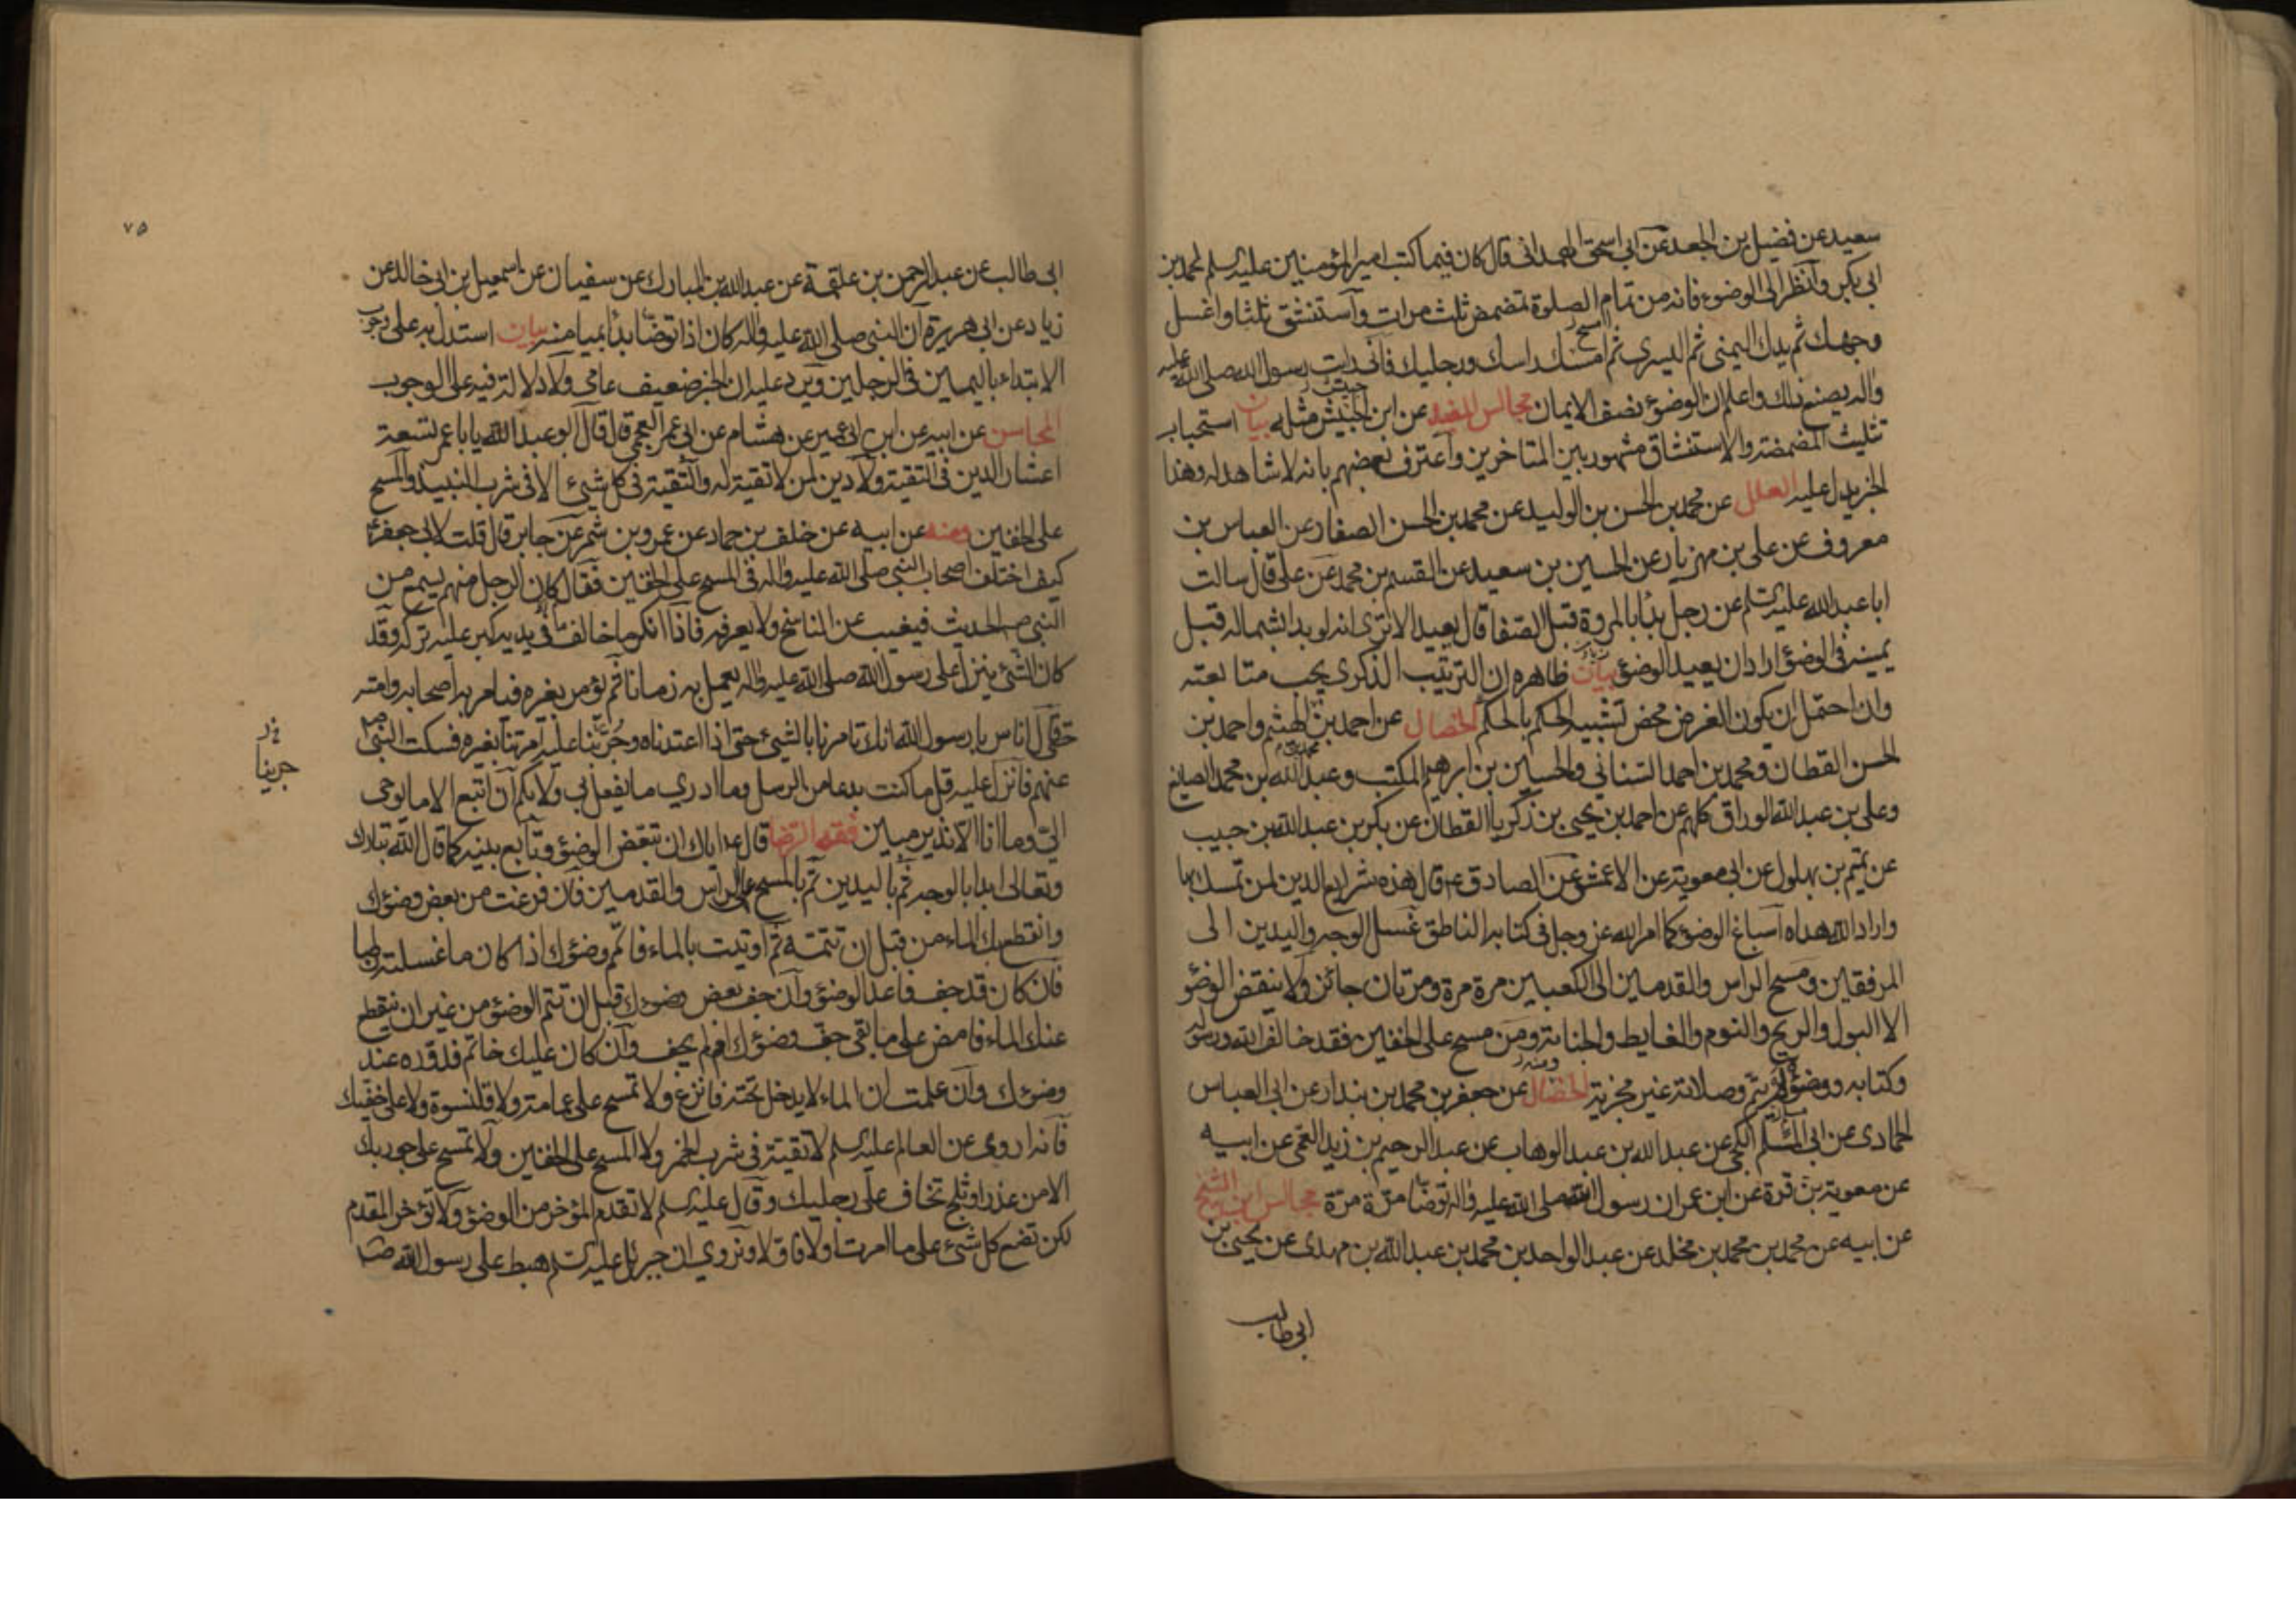 سعيد عن فضيل بن الجعد عن ابي اسحق الهمداني قال كان فيما كتب امير المؤمنين عليه السلم لمحمد بن
ابي بكر وانظر الى الوضوء فانه من تمام الصلوة تمضمض ثلث مرات واستنشق ثلثا واغسل
وجهك ثم يدك اليمنى ثم اليسرى ثم امسح راسك ورجليك فاني رايت رسول الله صلى الله عليه
واله يصنع ذلك واعلم ان الوضوء نصف الايمان مجالس المفيد عن ابن حبيش مثله بيان استحباب
تثليث المضمضة والاستنشاق مشهور بين المتاخرين واعترف بعضهم بانه لا شاهد له وهذا
الخبر يدل عليه العلل عن محمد بن الحسن بن الوليد عن محمد بن الحسن الصفار عن العباس بن
معروف عن علي بن مهزيار عن الحسين بن سعيد عن القسم بن محمد عن علي قال سالت
ابا عبد الله عليه السلم عن رجل بدأ بالمروة قبل الصفا قال يعيد الا ترى انه لو بدا بشماله قبل
يمينه في الوضوء اراد ان يعيد الوضوء بيان ظاهره ان الترتيب الذكري يجب متابعته
وان احتمل ان يكون الغرض محض تشبيه الحكم بالحكم الخصال عن احمد بن الهيثم واحمد بن
الحسن القطان ومحمد بن احمد السناني والحسين بن ابرهيم المكتب وعبد الله بن محمد الصايغ
وعلي بن عبد الله الوراق كلهم عن احمد بن يحيى بن زكريا القطان عن بكر بن عبد الله بن حبيب
عن تميم بن بهلول عن ابي معوية عن الاعمش عن الصادق ع قال هذه شرايع الدين لمن تمسك بها
واراد الله هداه اسباغ الوضوء كما امر الله عز وجل في كتابه الناطق غسل الوجه واليدين الى
المرفقين ومسح الراس والقدمين الى الكعبين مرة مرة ومرتان جائز ولا ينقض الوضوء
الا البول والريح والنوم والغايط والجنابة ومن مسح على الخفين فقد خالف الله ورسوله
وكتابه ووضوؤه لم يتم وصلاته غير مجزية ومنه الخصال عن جعفر بن محمد بن بندار عن ابي العباس
الحمادي عن ابي مسلم الكجي عن عبد الله بن عبد الوهاب عن عبد الرحيم بن زيد العمي عن ابيه
عن معوية بن قرة عن ابن عمر ان رسول الله صلى الله عليه واله توضا مرة مرة مجالس ابن الشيخ
عن ابيه عن محمد بن محمد بن مخلد عن عبد الواحد بن محمد بن عبد الله بن مهدي عن يحيى بن
ابي طالب
٧٥
ابي طالب عن عبد الرحمن بن علقمة عن عبد الله بن المبارك عن سفيان عن اسمعيل بن ابي خالد عن
زياد عن ابي هريرة ان النبي صلى الله عليه واله كان اذا توضا بدأ بميامنه بيان استدل به على وجوب
الابتداء باليمين في الرجلين ويرد عليه ان الخبر ضعيف عامي ولا دلالة فيه على الوجوب
المحاسن عن ابيه عن ابن ابي عمير عن هشام عن ابي عمر العجمي قال قال ابو عبد الله يا با عمر تسعة
اعشار الدين في التقية ولا دين لمن لا تقية له والتقية في كل شيئ الا في شرب النبيذ والمسح
على الخفين ومنه عن ابيه عن خلف بن حماد عن عمرو بن شمر عن جابر قال قلت لابي جعفر ع
كيف اختلف اصحاب النبي صلى الله عليه واله في المسح على الخفين فقال كان الرجل منهم يسمع من
النبي ص الحديث فيغيب عن الناسخ ولا يعرفه فاذا انكر ما خالف ما في يديه كبر عليه تركه وقد
كان الشيئ ينزل على رسول الله صلى الله عليه واله يعمل به زمانا ثم يؤمر بغيره فيامر به اصحابه وامته
حتى قال اناس يا رسول الله انك تامرنا بالشيئ حتى اذا اعتدناه وجرينا عليه امرتنا بغيره فسكت النبي ص
جرينا
عنهم فانزل عليه قل ما كنت بدعا من الرسل وما ادري ما يفعل بي ولا بكم ان اتبع الا ما يوحى
الي وما انا الا نذير مبين فقه الرضا قال ع اياك ان تبعض الوضوء وتابع بينه كما قال الله تبارك
وتعالى ابدا بالوجه ثم باليدين ثم بالمسح على الراس والقدمين فان فرغت من بعض وضوئك
وانقطع بك الماء من قبل ان تتمه ثم اوتيت بالماء فاتم وضوئك اذا كان ما غسلته رطبا
فان كان قد جف فاعد الوضوء وان جف بعض وضوئك قبل ان تتم الوضوء من غير ان ينقطع
عنك الماء فامض على ما بقي جف وضوئك ام لم يجف وان كان عليك خاتم فدوره عند
وضوئك وان علمت ان الماء لا يدخل تحته فانزع ولا تمسح على عمامة ولا قلنسوة ولا على خفيك
فانه اروي عن العالم عليه السلم لا تقية في شرب الخمر ولا المسح على الخفين ولا تمسح على جوربك
الا من عذر او ثلج تخاف على رجليك وقال عليه السلم لا تقدم المؤخر من الوضوء ولا تؤخر المقدم
لكن تضع كل شيئ على ما امرت اولا فاولا ونروي ان جبرئيل عليه السلم هبط على رسول الله ص